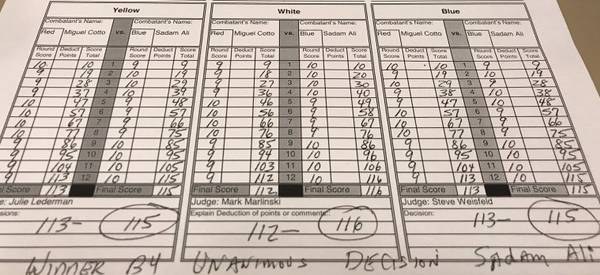 Yellow White Blue
Combatant's Name: Combatant's Name: Combatant's Name: Combatant's Name: Combatant's Name: Combatant's Name:
Red Miguel Cotto vs. Blue Sadam Ali Red Miguel Cotto vs. Blue Sadam Ali Red Miguel Cotto vs. Blue Sadam Ali
Round Score Deduct Points Score Total Round Score Deduct Points Score Total Round Score Deduct Points Score Total Round Score Deduct Points Score Total Round Score Deduct Points Score Total Round Score Deduct Points Score Total
10 10 1 9 9 9 9 1 10 10 10 10 1 9 9
9 19 2 10 19 9 18 2 10 20 9 19 2 10 19
9 28 3 10 29 9 27 3 10 30 10 29 3 9 28
9 37 4 10 39 9 36 4 10 40 9 38 4 10 38
10 47 5 9 48 10 46 5 9 49 9 47 5 10 48
10 57 6 9 57 10 56 6 9 58 10 57 6 9 57
10 67 7 9 66 10 66 7 9 67 10 67 7 9 66
10 77 8 9 75 10 76 8 9 76 10 77 8 9 75
9 86 9 10 85 9 85 9 10 86 9 86 9 10 85
9 95 10 10 95 9 94 10 10 96 9 95 10 10 95
9 104 11 10 105 9 103 11 10 106 9 104 11 10 105
9 113 12 10 115 9 112 12 10 116 9 113 12 10 115
al Score 113 Final Score 115 Final Score 112 Final Score 116 Final Score 113 Final Score 115
e: Julie Lederman Judge: Mark Marlinski Judge: Steve Weisfeld
sions: Explain Deduction of points or comments: Decision:
113- 115 112- 116 113- 115
WINNER BY UNANIMOUS DECISION Sadam Ali